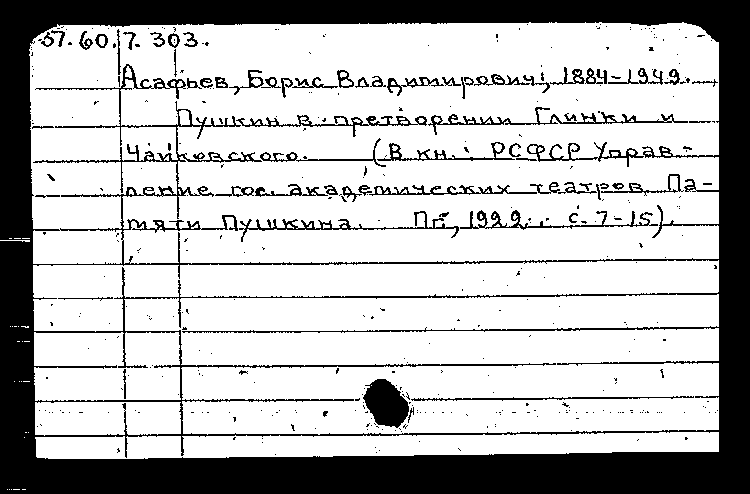 57.60.7.303.
Асафьев, Борис Владимирович, 1884-1949.
Пушкин в претворении Глинки и
Чайковского. (В кн.: РСФСР Управ-
ление гос. академических театров. Па-
мяти Пушкина. Пг., 1922. с. 7-15).